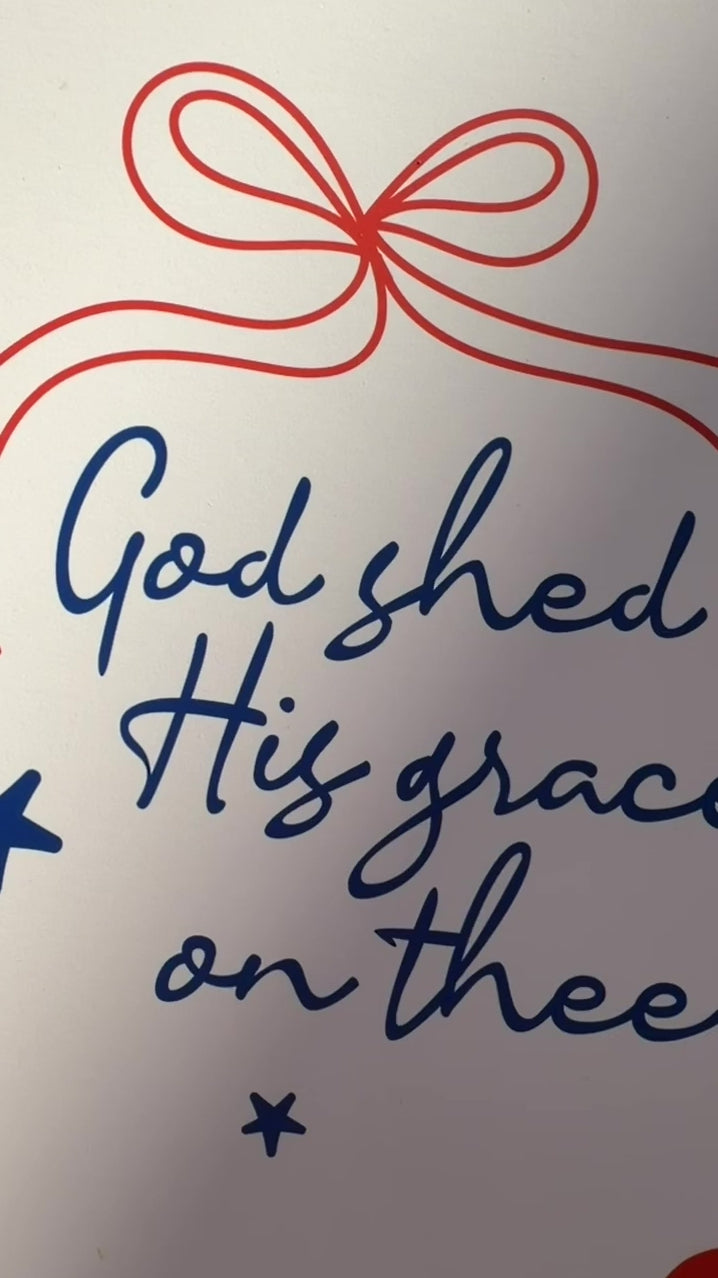 God shed
His grace
on thee